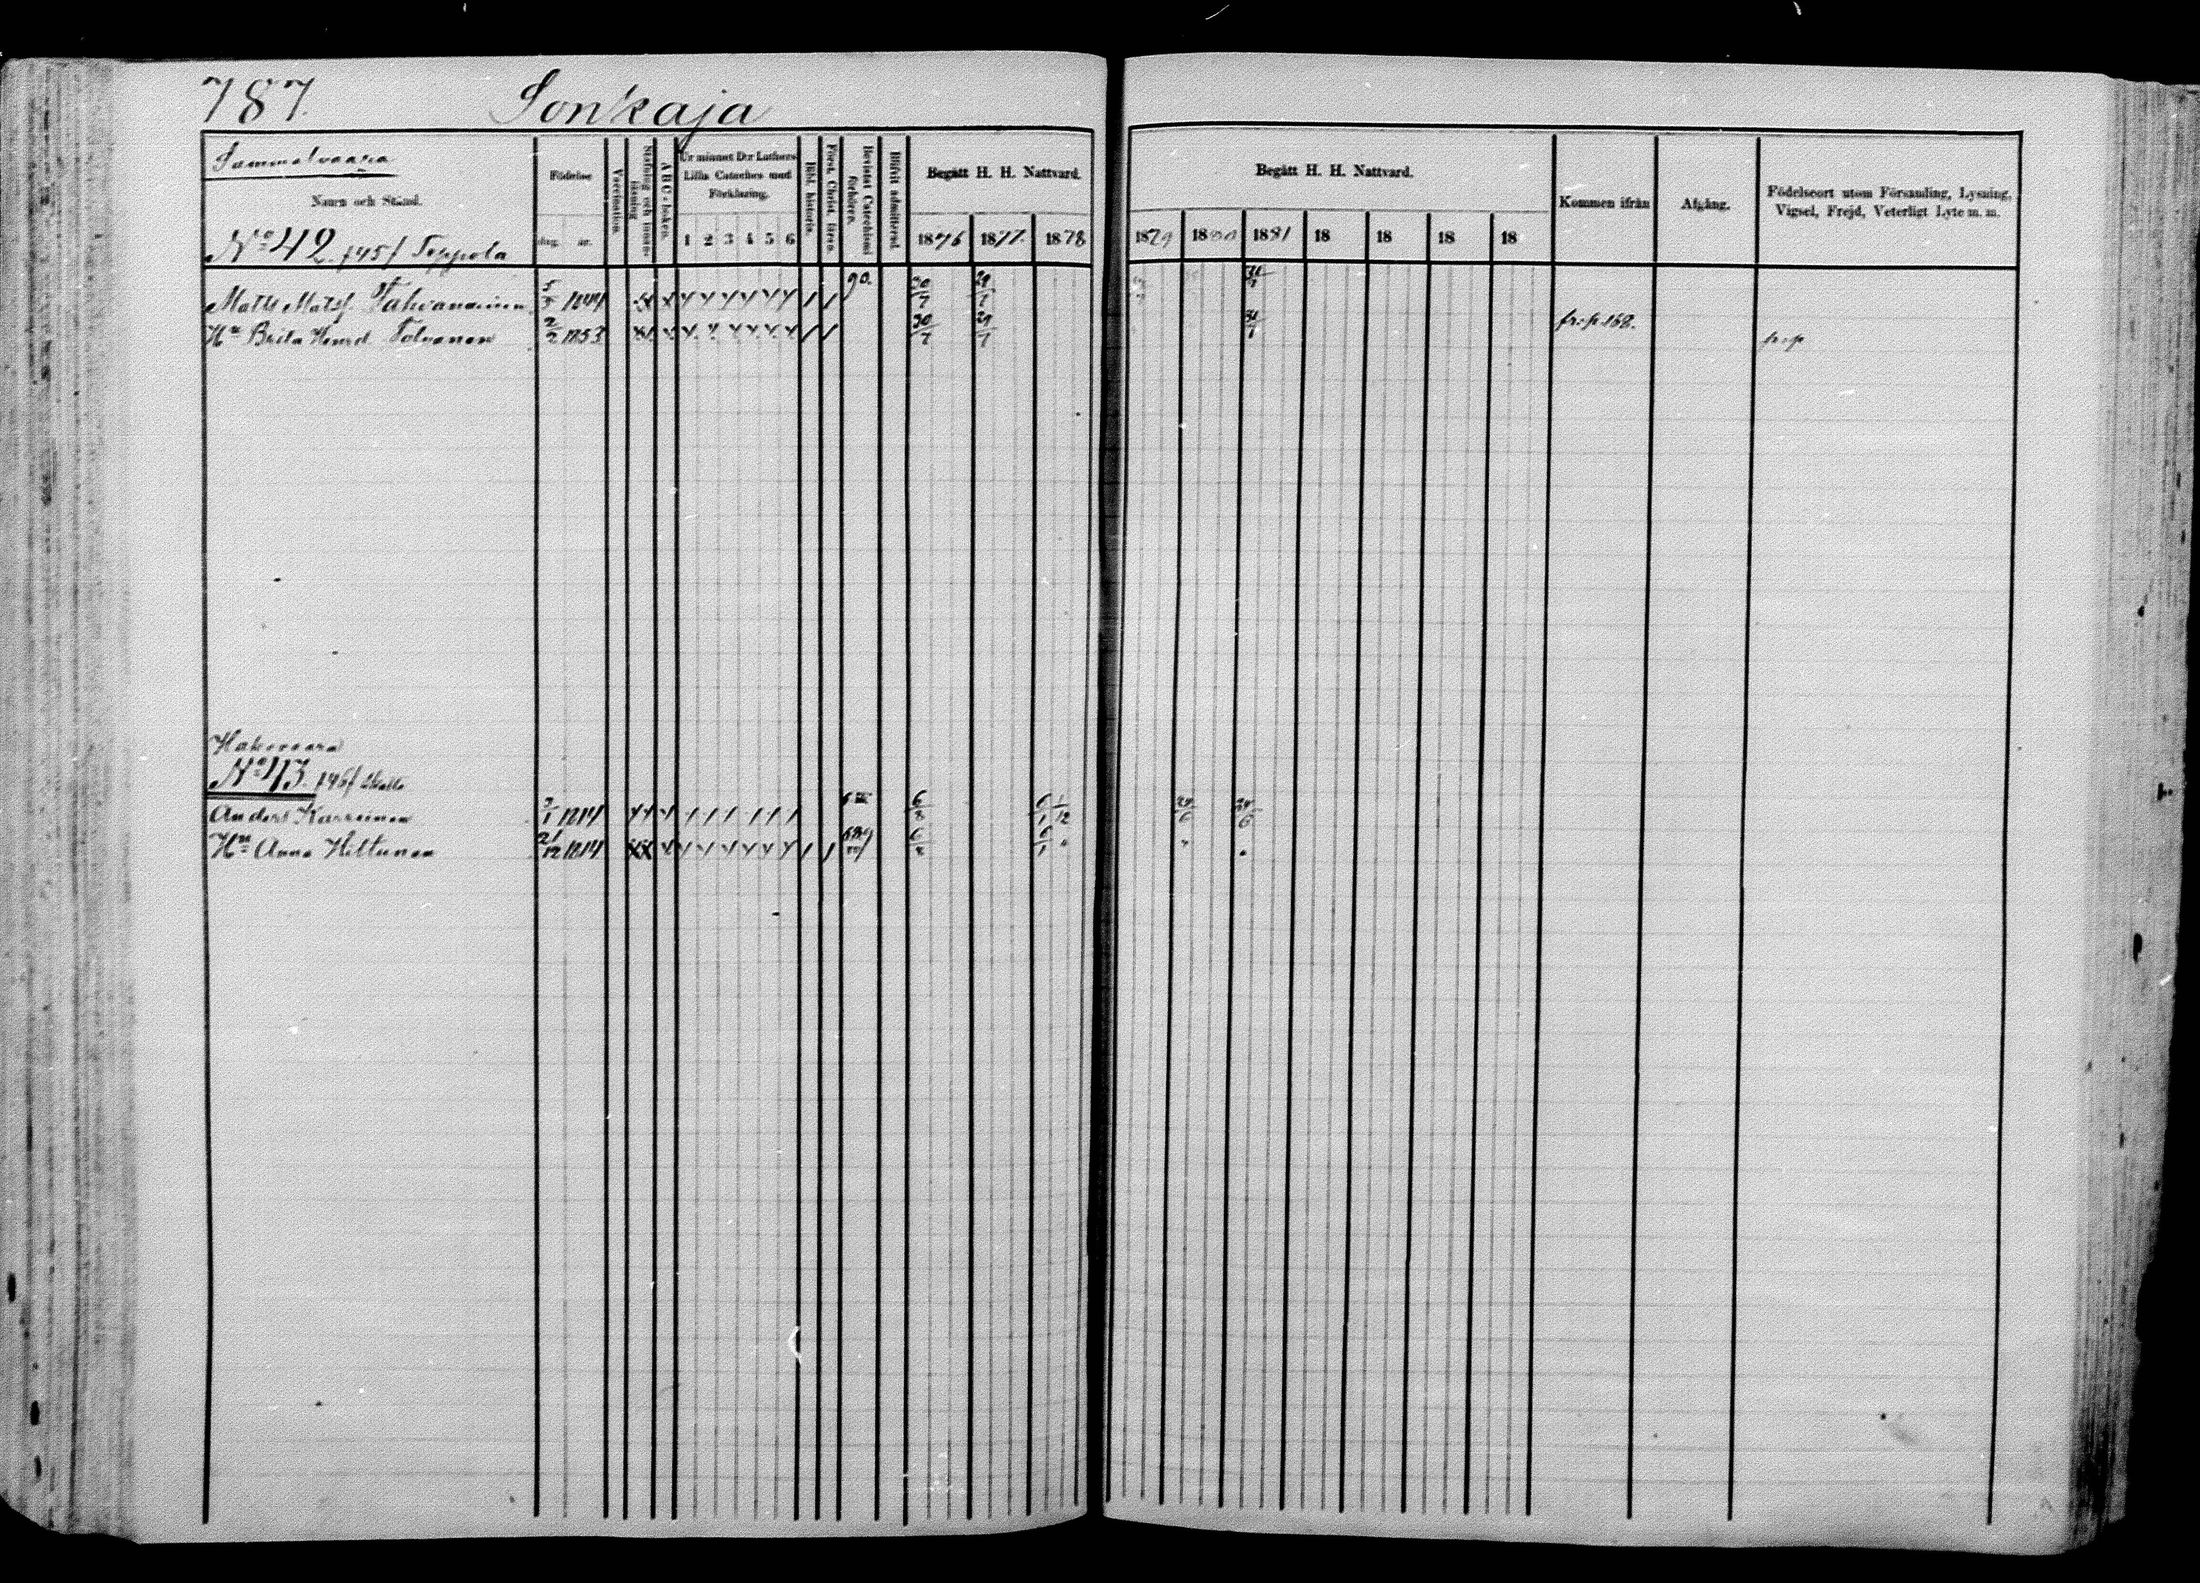 787. Sonkaja
Sammalvaara
Namn och Stånd.
No 42. 145/ Teppola
Födelse
dag. år.
Vaccination.
Stafning och innanläsning
A B C-boken.
Ur minnet D:r Luthers
Lilla Cateches med
Förklaring.
1 2 3 4 5 6
Bibl. historie.
Först. Christ. läran.
Bevistat Catechismi
förhören.
Blifvit admitterad.
Begått H. H. Nattvard.
1876 1877 1878
Begått H. H. Nattvard.
1879 1880 1881 18 18 18 18
Kommen ifrån
Afgång.
Födelseort utom Församling, Lysning,
Vigsel, Frejd, Veterligt Lyte m. m.
Matts Matsf. Tahvanainen 1844 90. 30/7 29/7
Hu Brita Henrd Tolvanen 2/2 1853 30/7 29/7 fr. p. 168.
Hakovaara
No 43. 146/
Anders Karvinen 1814 6/8
Hu Anna Hiltunen 21/12 1814 6/8